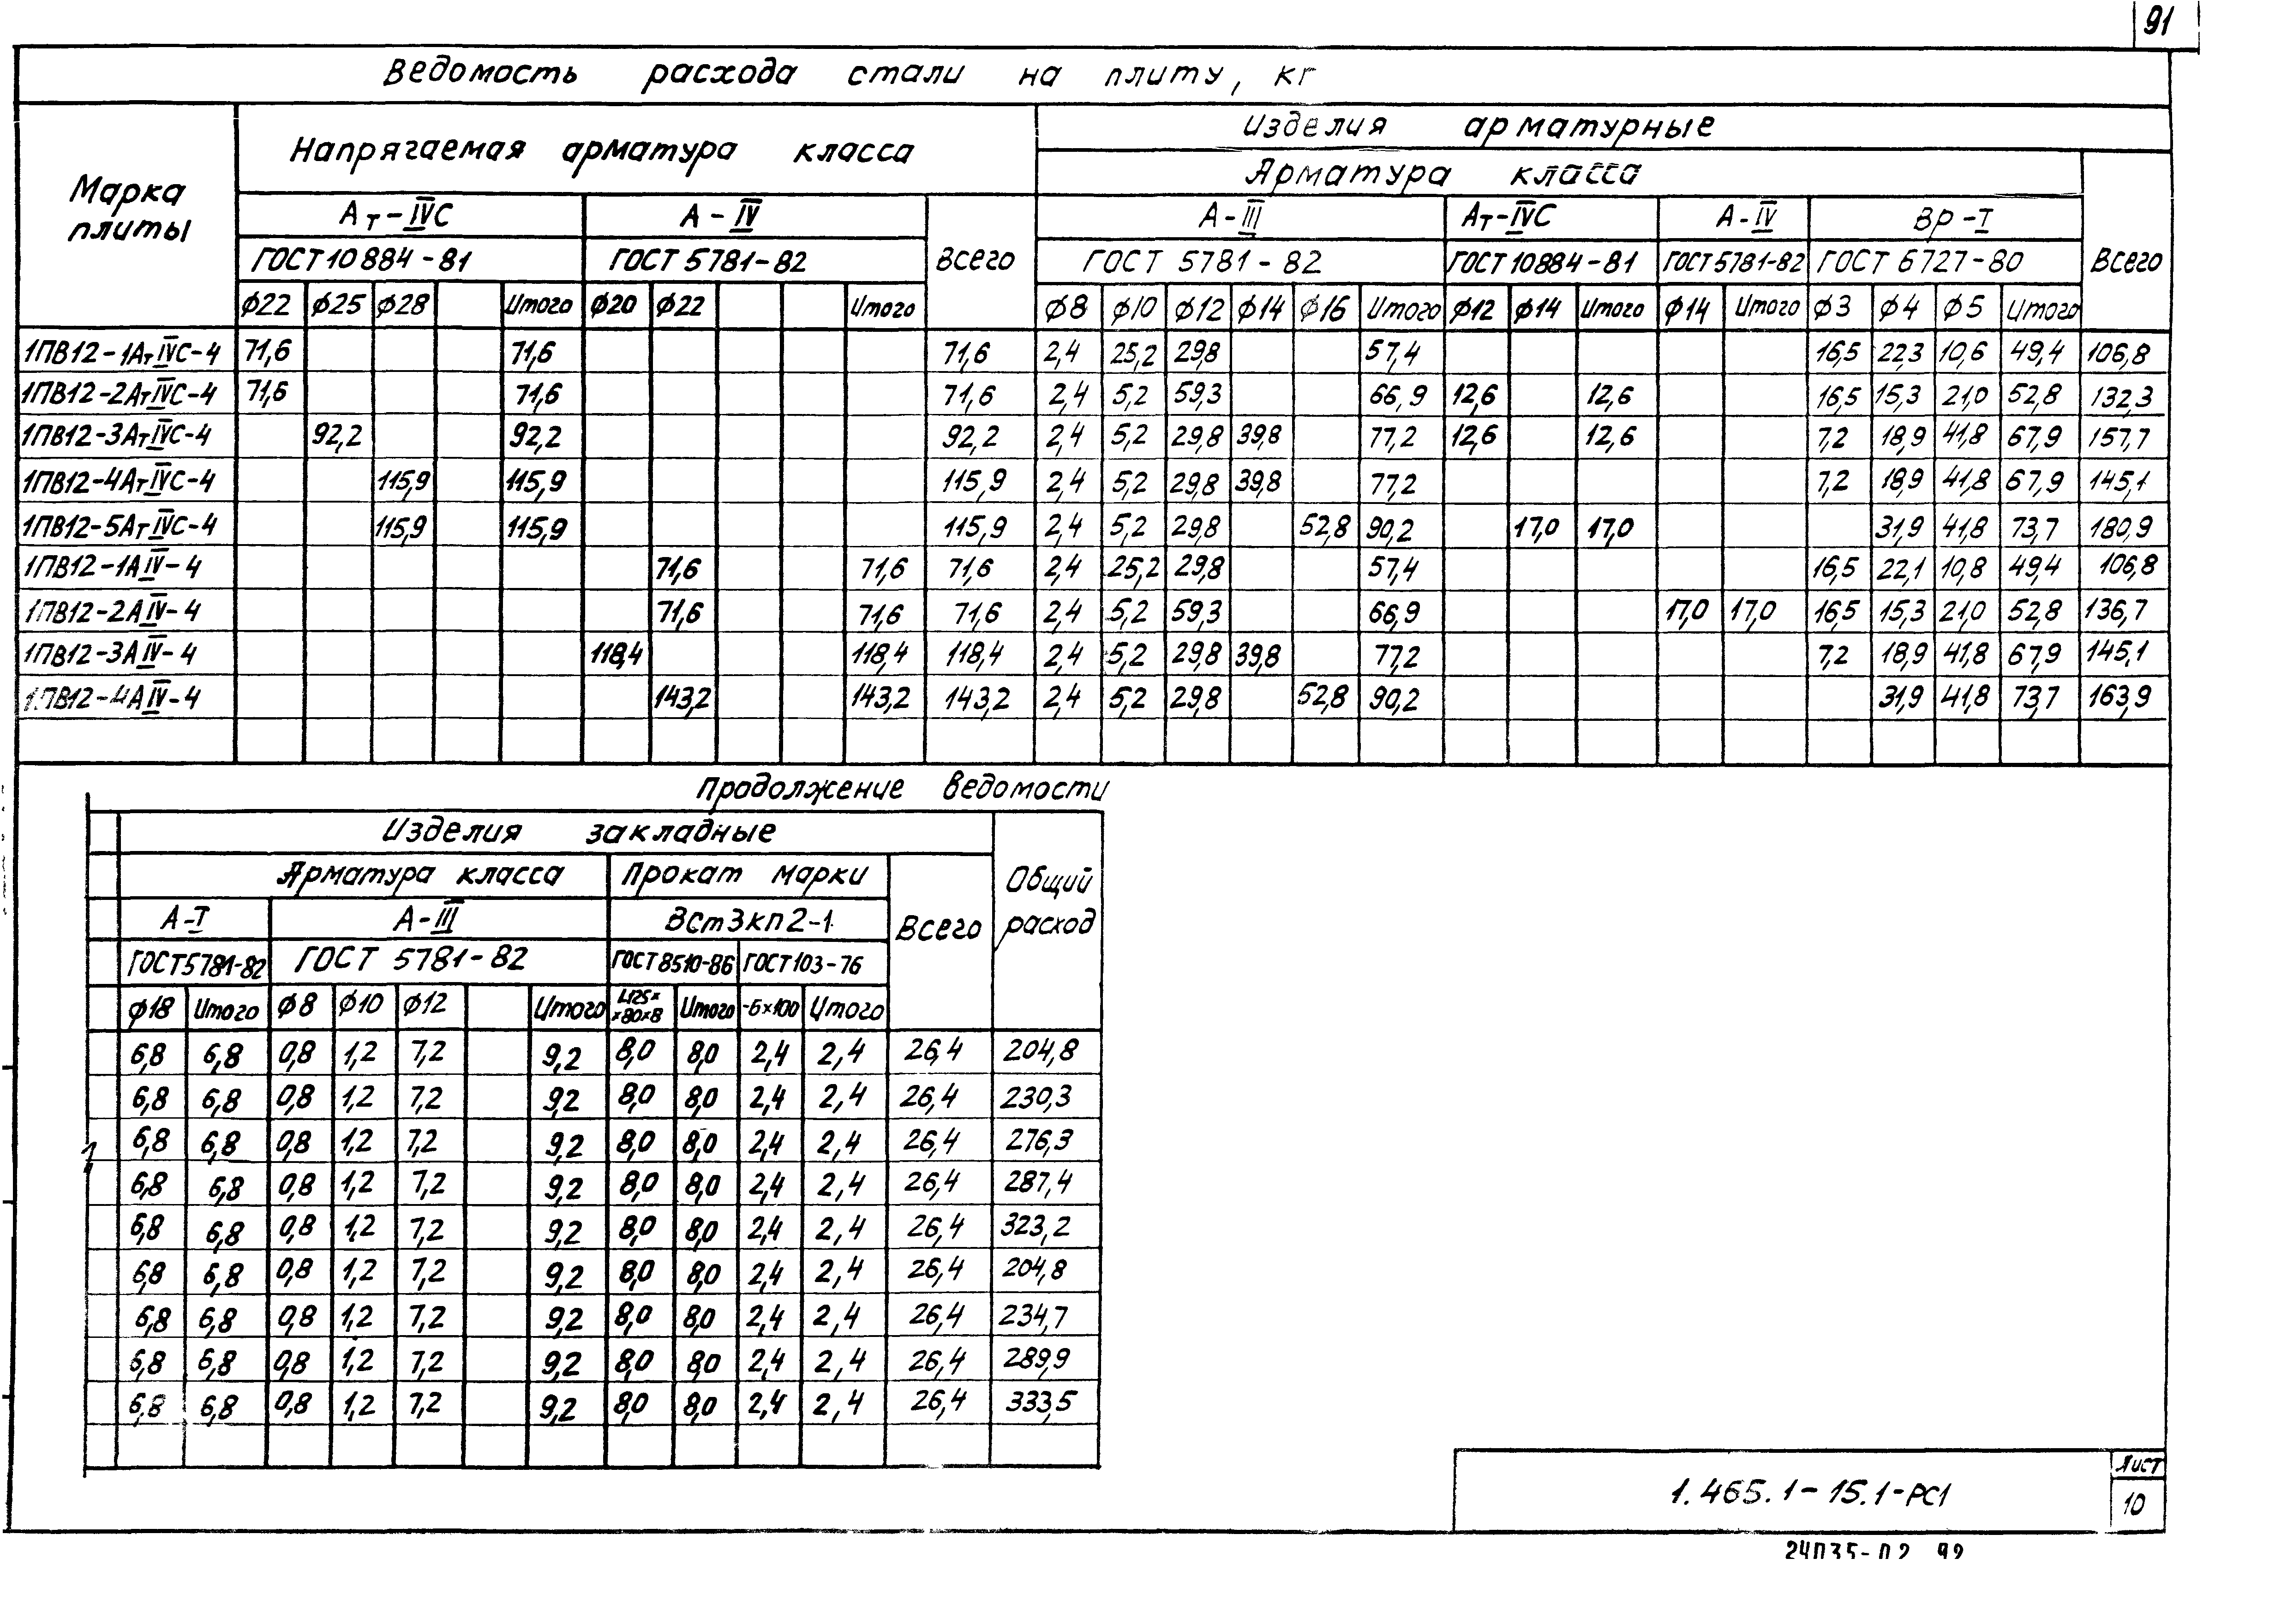 91
Ведомость расхода стали на плиту, кг
Марка плиты
Напрягаемая арматура класса
Изделия арматурные
Арматура класса
Ат-IVС А-IV Всего А-III Ат-IVС А-IV Вр-I Всего
ГОСТ 10884-81 ГОСТ 5781-82 ГОСТ 5781-82 ГОСТ 10884-81 ГОСТ 5781-82 ГОСТ 6727-80
ϕ22 ϕ25 ϕ28 Итого ϕ20 ϕ22 Итого ϕ8 ϕ10 ϕ12 ϕ14 ϕ16 Итого ϕ12 ϕ14 Итого ϕ14 Итого ϕ3 ϕ4 ϕ5 Итого
1ПВ12-1АтIVС-4 71,6 71,6 71,6 2,4 25,2 29,8 57,4 16,5 22,3 10,6 49,4 106,8
1ПВ12-2АтIVС-4 71,6 71,6 71,6 2,4 5,2 59,3 66,9 12,6 12,6 16,5 15,3 21,0 52,8 132,3
1ПВ12-3АтIVС-4 92,2 92,2 92,2 2,4 5,2 29,8 39,8 77,2 12,6 12,6 7,2 18,9 41,8 67,9 157,7
1ПВ12-4АтIVС-4 115,9 115,9 115,9 2,4 5,2 29,8 39,8 77,2 7,2 18,9 41,8 67,9 145,1
1ПВ12-5АтIVС-4 115,9 115,9 115,9 2,4 5,2 29,8 52,8 90,2 17,0 17,0 31,9 41,8 73,7 180,9
1ПВ12-1АIV-4 71,6 71,6 71,6 2,4 25,2 29,8 57,4 16,5 22,1 10,8 49,4 106,8
1ПВ12-2АIV-4 71,6 71,6 71,6 2,4 5,2 59,3 66,9 17,0 17,0 16,5 15,3 21,0 52,8 136,7
1ПВ12-3АIV-4 118,4 118,4 118,4 2,4 5,2 29,8 39,8 77,2 7,2 18,9 41,8 67,9 145,1
1ПВ12-4АIV-4 143,2 143,2 143,2 2,4 5,2 29,8 52,8 90,2 31,9 41,8 73,7 163,9
Продолжение ведомости
Изделия закладные
Арматура класса Прокат марки Всего Общий расход
А-I А-III ВСт3кп2-1
ГОСТ 5781-82 ГОСТ 5781-82 ГОСТ 8510-86 ГОСТ 103-76
ϕ18 Итого ϕ8 ϕ10 ϕ12 Итого L125××80×8 Итого -6×100 Итого
6,8 6,8 0,8 1,2 7,2 9,2 8,0 8,0 2,4 2,4 26,4 204,8
6,8 6,8 0,8 1,2 7,2 9,2 8,0 8,0 2,4 2,4 26,4 230,3
6,8 6,8 0,8 1,2 7,2 9,2 8,0 8,0 2,4 2,4 26,4 276,3
6,8 6,8 0,8 1,2 7,2 9,2 8,0 8,0 2,4 2,4 26,4 287,4
6,8 6,8 0,8 1,2 7,2 9,2 8,0 8,0 2,4 2,4 26,4 323,2
6,8 6,8 0,8 1,2 7,2 9,2 8,0 8,0 2,4 2,4 26,4 204,8
6,8 6,8 0,8 1,2 7,2 9,2 8,0 8,0 2,4 2,4 26,4 234,7
6,8 6,8 0,8 1,2 7,2 9,2 8,0 8,0 2,4 2,4 26,4 289,9
6,8 6,8 0,8 1,2 7,2 9,2 8,0 8,0 2,4 2,4 26,4 333,5
1.465.1-15.1-РС1
Лист
10
24035-02 92